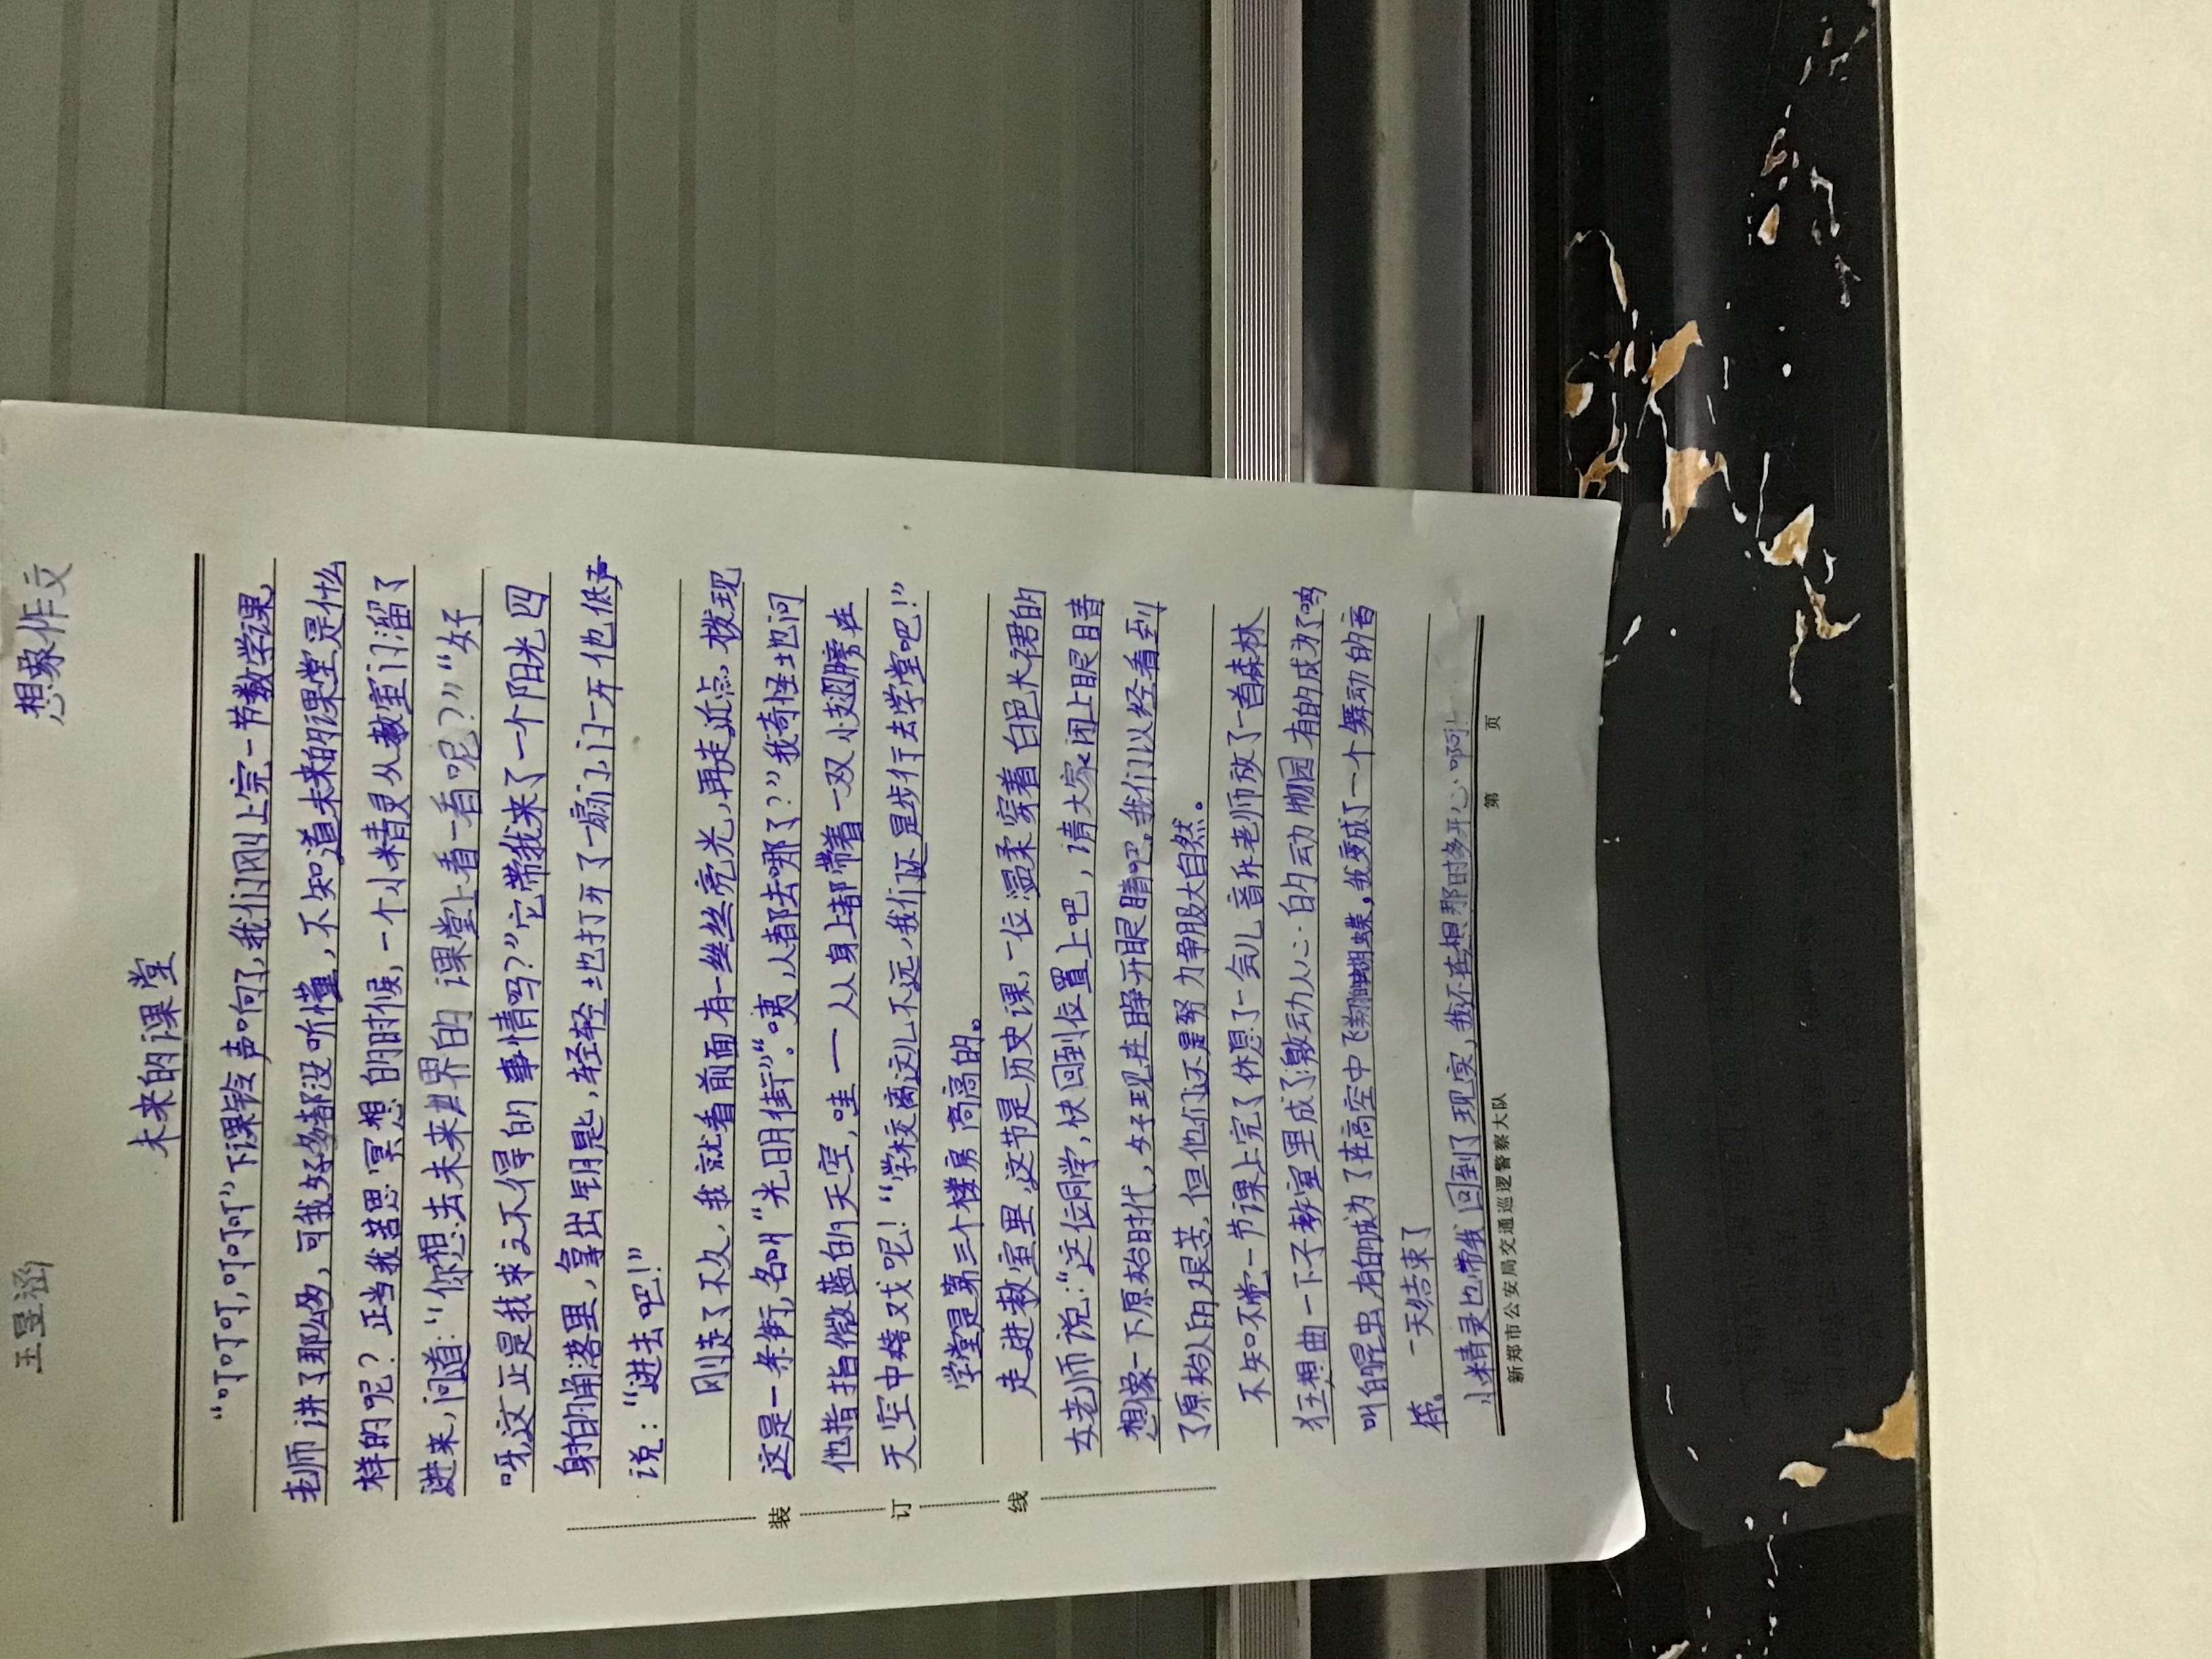 王昱涵 想象作文
未来的课堂
“叮叮叮，叮叮”下课铃声响了，我们刚上完一节数学课，
老师讲了那么多，可我好多都没听懂，不知道未来的课堂是什么
样的呢？正当我苦思冥想的时候，一个小精灵从教室门溜了
进来，问道：“你想去未来世界的课堂上看一看呢？”“好
呀，这正是我求之不得的事情吗？”它带我来了一个阳光四
射的角落里，拿出钥匙，轻轻地打开了一扇门，门一开他低声
说：“进去吧！”
刚走了不久，我就看前面有一丝丝亮光，再走近点，发现
这是一条街，名叫“光明街”。“咦，人都去哪了？”我奇怪地问
他指指微蓝的天空，哇——人身上都带着一双小翅膀在
天空中嬉戏呢！“学校离这儿不远，我们还是步行去学堂吧！”
学堂是第三个楼房高高的。
走进教室里，这节是历史课，一位温柔穿着白色长裙的
女老师说：“这位同学，快回到位置上吧，请大家闭上眼睛
想像一下原始时代，好现在睁开眼睛吧，我们以经看到
了原始人的艰苦，但他们还是努力争服大自然。
不知不觉一节课上完了休息了一会儿音乐老师放了一首森林
狂想曲一下子教室里成了激动人心的动物园有的成为了鸣
叫的昆虫，有的成为了在高空中飞翔蝴蝶，我变成了一个舞动的音
符。一天结束了
小精灵也带我回到了现实，我还在想那时多开心啊！
新郑市公安局交通巡逻警察大队 第 页
装
订
线